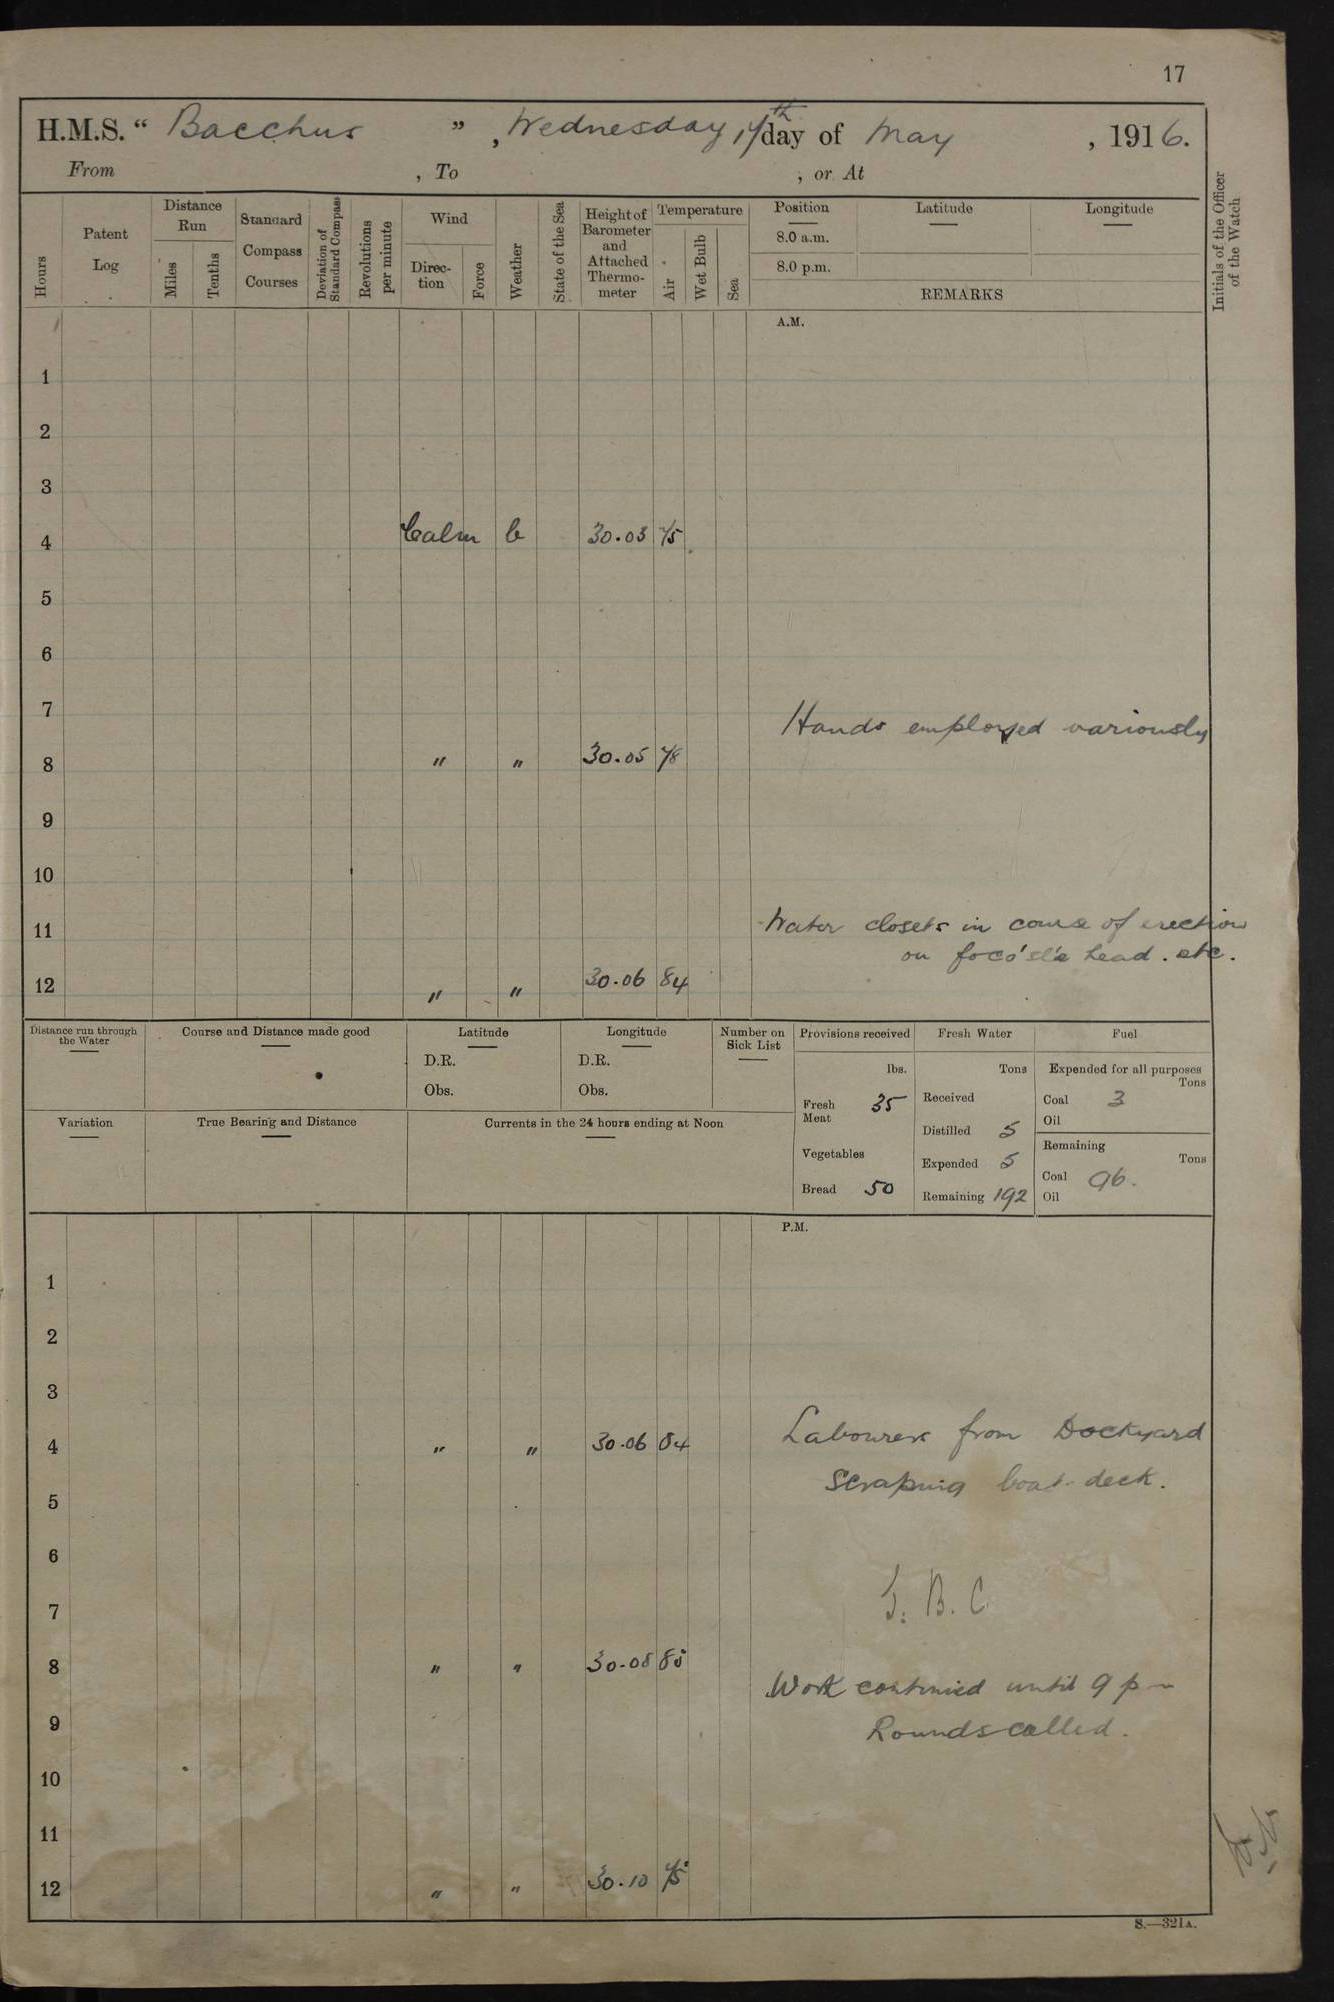 17
H.M.S. “ Bacchus ” , Wednesday 17th day of May , 1916.
From , To , or At
Hours
Patent Log
Distance Run
Miles
Tenths
Standard Compass Courses
Deviation of Standard Compass
Revolutions per minute
Wind
Direc-tion
Force
Weather
State of the Sea
Height of Barometer and Attached Thermo-meter
Temperature
Air
Wet Bulb
Sea
Position Latitude Longitude
8.0 a.m.
8.0 p.m.
REMARKS
Initials of the Officer of the Watch
A.M.
1
2
3
4 Calm b 30.03 75
5
6
7
Hands employed variously
8 " " 30.05 78
9
10
11 Water closets in course of erection
on foco'sl'e head. etc.
12 " " 30.06 84
Distance run through the Water
Course and Distance made good
Latitude
D.R.
Obs.
Longitude
D.R.
Obs.
Number on Sick List
Variation
True Bearing and Distance
Currents in the 24 hours ending at Noon
Provisions received
lbs.
Fresh Meat 35
Vegetables
Bread 50
Fresh Water
Tons
Received
Distilled 5
Expended 5
Remaining 192
Fuel
Expended for all purposes
Tons
Coal 3
Oil
Remaining
Tons
Coal 96.
Oil
P.M.
1
2
3
4 " " 30.06 84 Labourers from Dockyard
scraping boat-deck.
5
6
7 B. C
8 " " 30.08 85
Work continued until 9 pm
9 Rounds called.
10
11
12 " " 30.10 75
S.—321A.